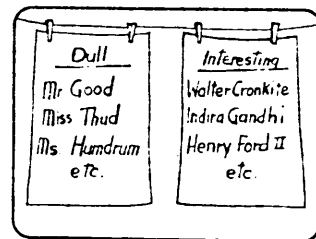 Dull
Mr Good
Miss Thud
Ms. Humdrum
etc.
Interesting
Walter Cronkite
Indira Gandhi
Henry Ford II
etc.